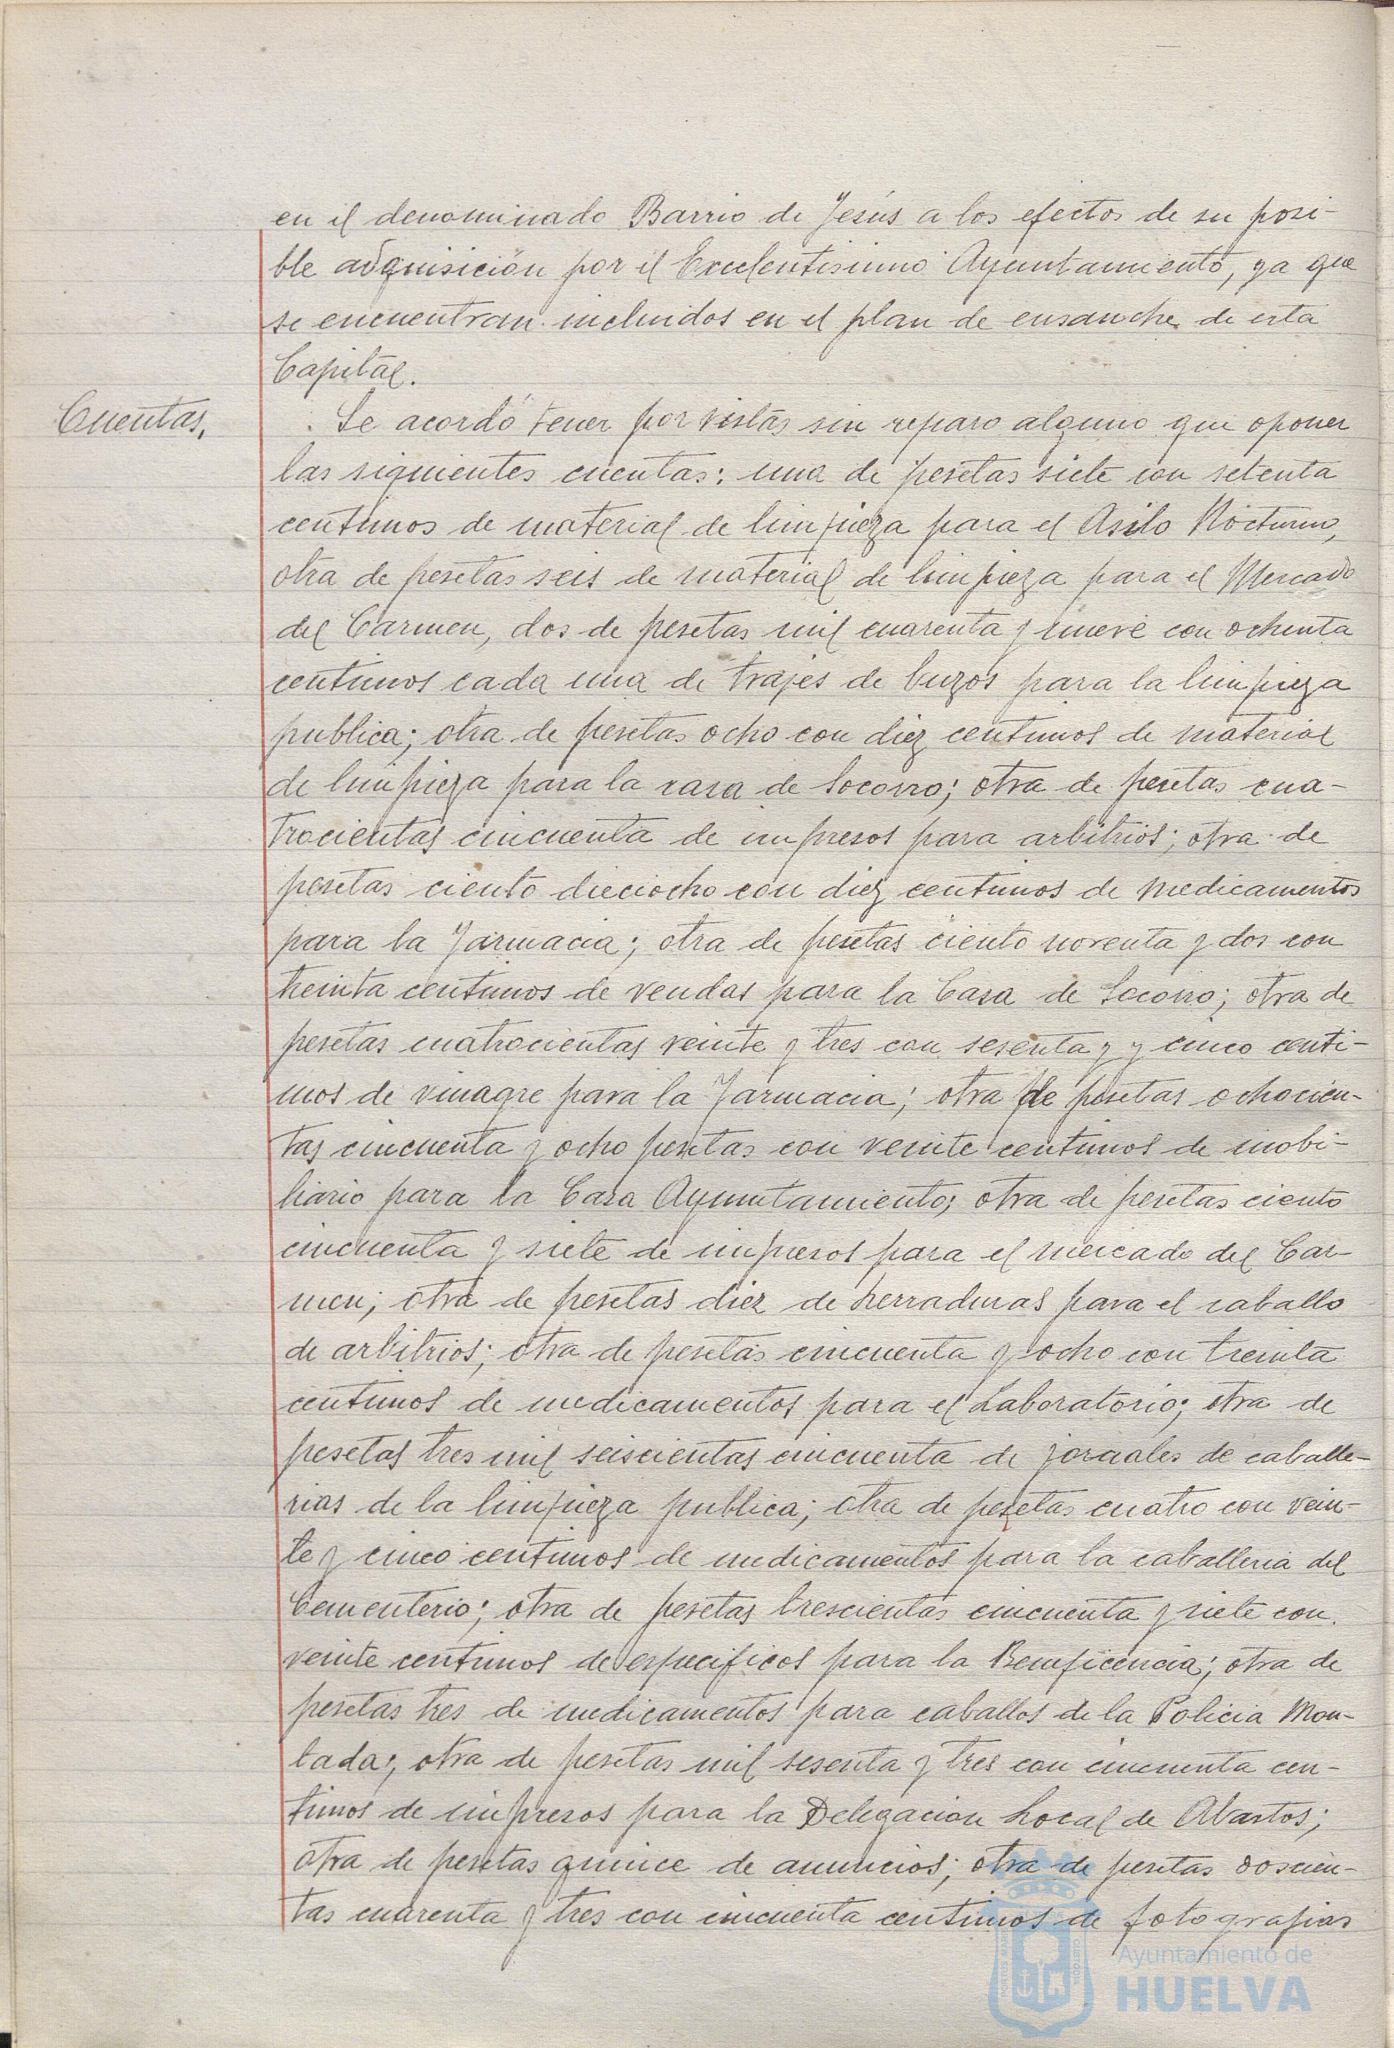 en el denominado Barrio de Jesús a los efectos de su posi-
ble adquisición por el Excelentisimo Ayuntamiento, ya que
se encuentran incluidos en el plan de ensanche de esta
Capital.
Cuentas.
Se acordó tener por vistas sin reparo alguno que oponer
las siguientes cuentas: una de pesetas siete con setenta
centimos de material de limpieza para el Asilo Nocturno,
otra de pesetas seis de material de limpieza para el Mercado
del Carmen, dos de pesetas mil cuarenta y nueve con ochenta
centimos cada una de trajes de buzos para la limpieza
publica; otra de pesetas ocho con diez centimos de material
de limpieza para la casa de Socorro; otra de pesetas cua-
trocientas cincuenta de impresos para arbitrios; otra de
pesetas ciento dieciocho con diez centimos de medicamentos
para la Farmacia; otra de pesetas ciento noventa y dos con
treinta centimos de vendas para la Casa de Socorro; otra de
pesetas cuatrocientas veinte y tres con sesenta y y cinco centi-
mos de vinagre para la Farmacia; otra de pesetas ochocien-
tas cincuenta y ocho pesetas con veinte centimos de mobi-
liario para la Casa Ayuntamiento; otra de pesetas ciento
cincuenta y siete de impresos para el mercado del Car-
men; otra de pesetas diez de herraduras para el caballo
de arbitrios; otra de pesetas cincuenta y ocho con treinta
centimos de medicamentos para el Laboratorio; otra de
pesetas tres mil seiscientas cincuenta de jornales de caballe-
rias de la limpieza publica; otra de pesetas cuatro con vein-
te y cinco centimos de medicamentos para la caballeria del
Cementerio; otra de pesetas trescientas cincuenta y siete con
veinte centimos de especificos para la Beneficencia; otra de
pesetas tres de medicamentos para caballos de la Policia Mon-
tada; otra de pesetas mil sesenta y tres con cincuenta cen-
timos de impresos para la Delegacion Local de Abastos;
otra de pesetas quince de anuncios; otra de pesetas doscien-
tas cuarenta y tres con cincuenta centimos de fotografias
Ayuntamiento de
HUELVA